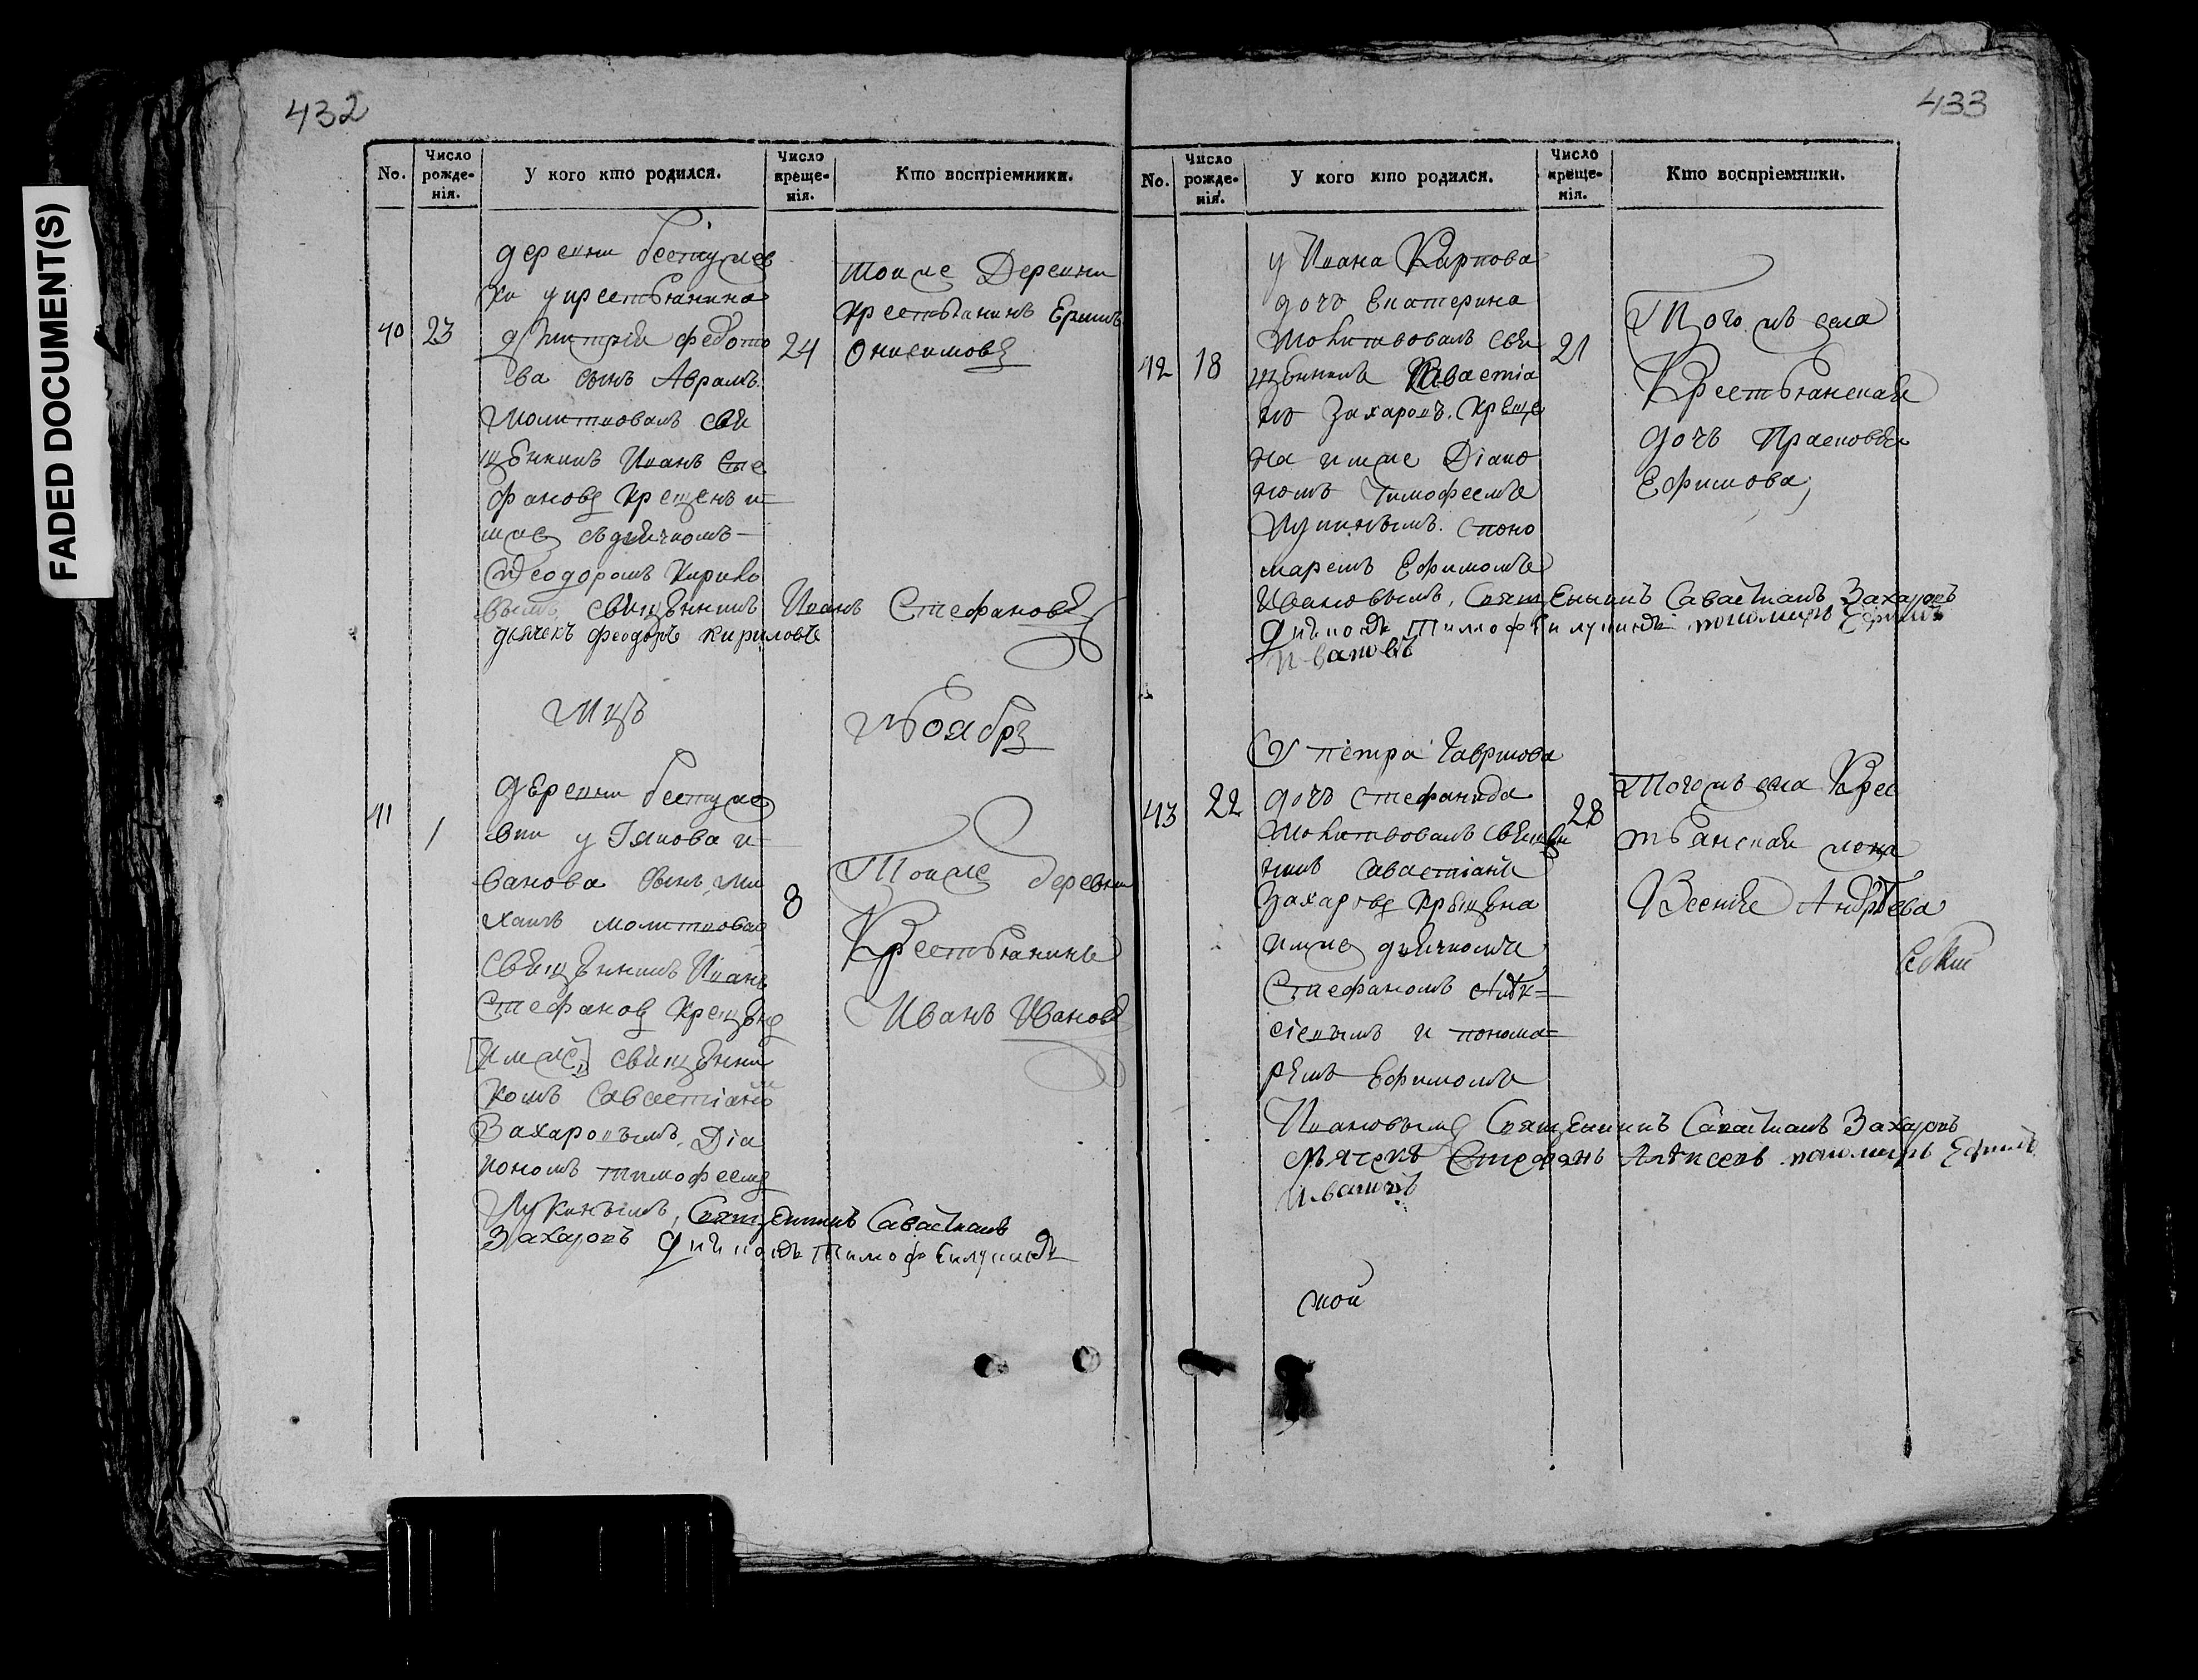 FADED DOCUMENT(S)
432
No.
Число рожденія.
У кого кто родился.
Число крещенія.
Кто воспріемники.
40
23
деревни бестуже
ки у крестьянина
Дмитрія федото
ва сынъ Аврамъ.
молитвовалъ свя
щенникъ Иванъ Сте
фановъ крещенъ и
мже съ дьячкомъ
Феодоромъ Кирило
вымъ, священникъ Иванъ Стефановъ
дьячекъ феодоръ кириловъ
24
тоиже Деревни
крестьянинъ Ермилъ
Онисимовъ
Мцъ Ноябрь
41
1
деревни бестуже
вки у Іякова и
ванова сынъ Ми
хаилъ молитвовал
священникъ Иванъ
Стефановъ крещенъ
имже священни
комъ Савастіаномъ
Захаровымъ, Діа
кономъ тимофеемъ
Лукинымъ, Священникъ Савастианъ
Захаровъ Дииконъ тимофеи лукинъ
8
Тоиже деревни
Крестьянинъ
Иванъ Ивановъ
433
No.
Число рожденія.
У кого кто родился.
Число крещенія.
Кто воспріемники.
42
18
у Ивана Карпова
дочь Екатерина
молитвовалъ свя
щенникъ Саваستіа
нъ Захаровъ. креще
на имже Діако
номъ Тимофеемъ
Лукинымъ. споно
маремъ Ефимомъ
Ивановымъ, Священникъ Савастианъ Захаровъ
Дииконъ Тимофеи лукинъ пономарь Ефимъ
Ивановъ
21
Того жъ села
Крестьянская
дочь Прасковья
Ефимова,
43
22
У петра Гаврилова
дочь Стефанида
молитвовалъ священ
никъ Савастіанъ
Захаровъ крещена
имже дьячкомъ
Стефаномъ Алек=
сіевымъ и понома=
ремъ Ефимомъ
Ивановымъ Священникъ Савастианъ Захаровъ
дьячекъ Стефанъ Алексеевъ пономарь Ефимъ
Ивановъ
28
Тогожъ села Крес
тьянская жена
Ксенія Андреева